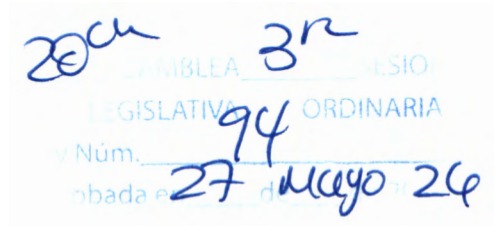 20 ma ASAMBLEA 3ra SESIO
LEGISLATIVA ORDINARIA
y Núm. 94
obada en 27 de Mayo 26